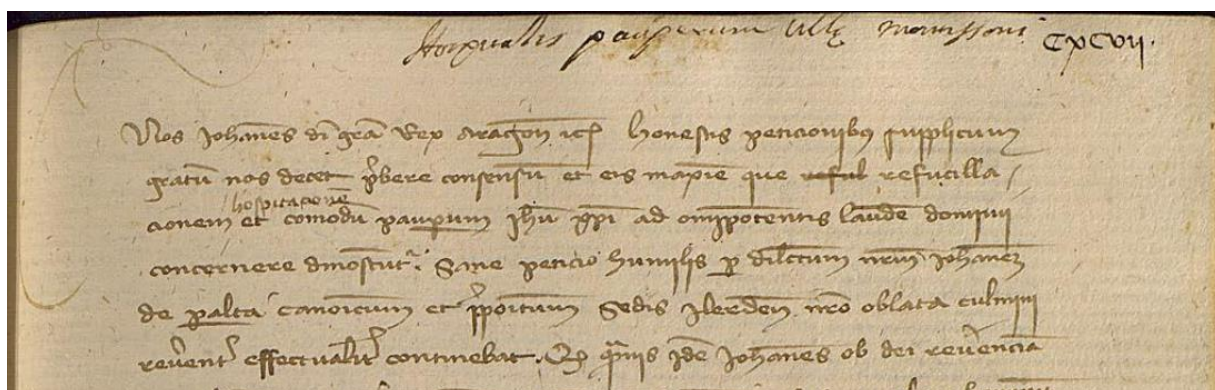 Hospitalis pauperum ville Montissoni CXCVII.
Nos Johannes dei gra Rex Aragon etc honestis peticionibus supplicum
gratum nos decet prebere consensum et eis maxime que reful refucilla
hospitacione
cionem et comodum pauperum Jhu xpi ad omnipotentis laudem domini
concernere dinoscuntur. Sane peticio humilis per dilectum nrm Johanem
de peralta canonicum et prepositum Sedis Ilerden nro oblata culmini
reverenter effectualiter continebat. Quod quamvis idem Johannes ob dei reverencia